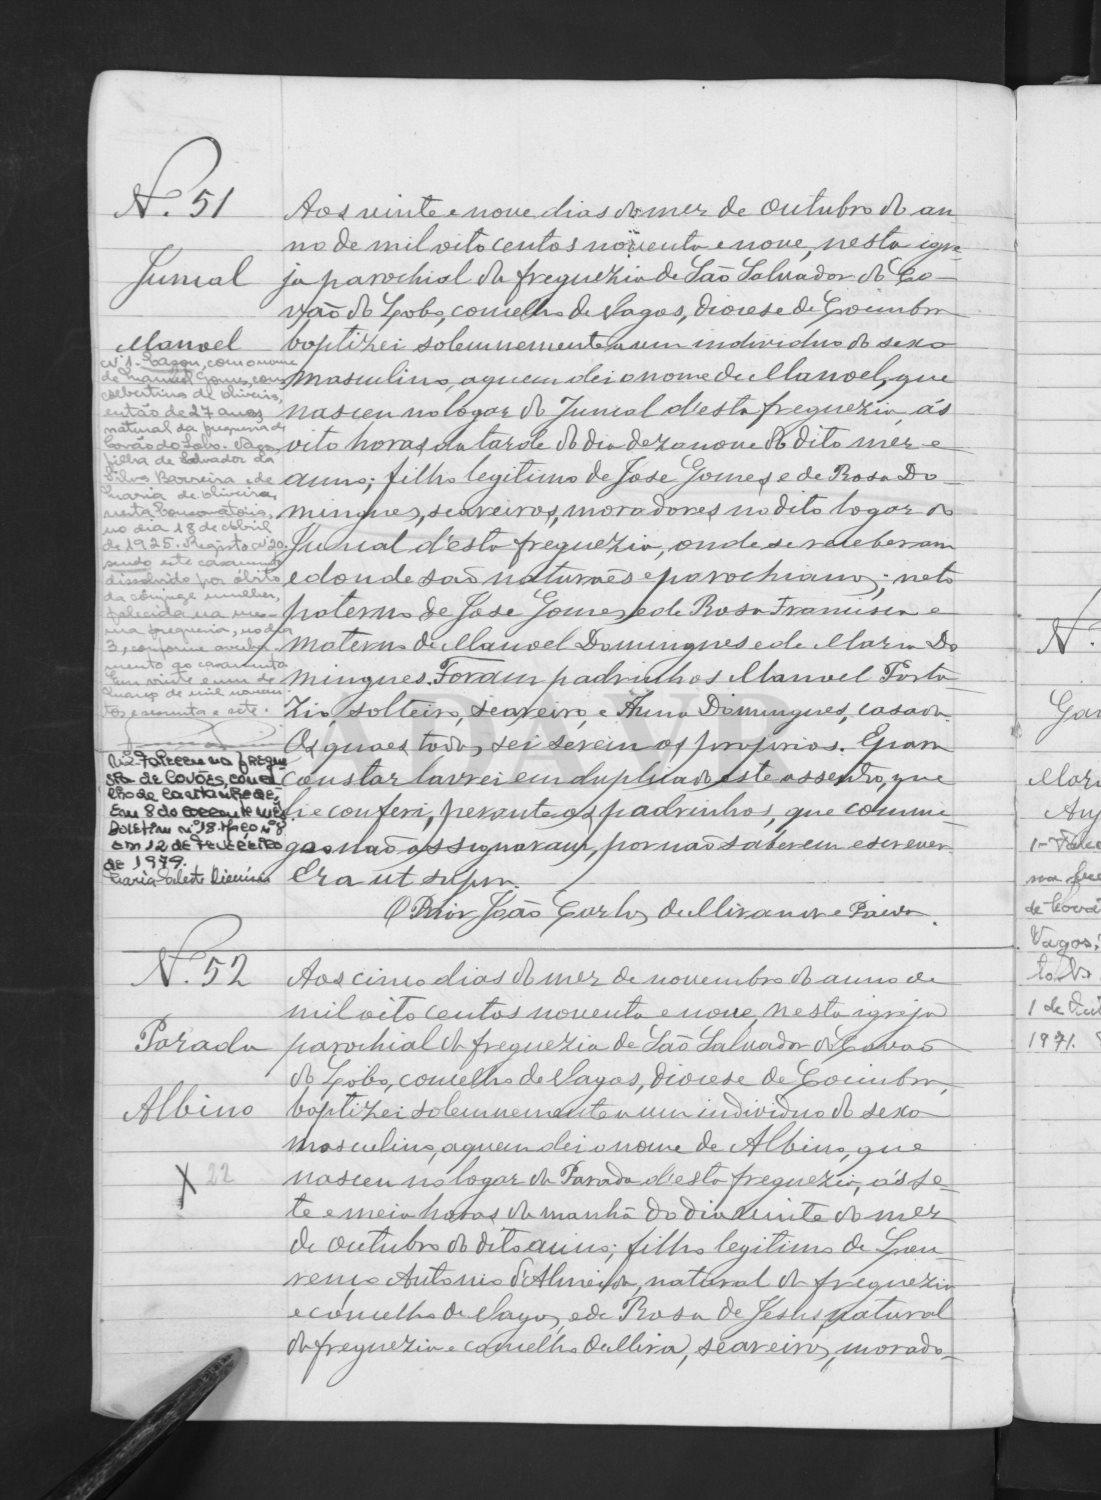 N.º 51
Juncal
Manoel
Nº 1. Casou, com o nome
de Manuel Gomes, com
Albertina de Oliveira,
então de 27 anos,
natural da freguesia de
Covão do Lobo - Vagos,
filha de Salvador da
Silva Barreira e de
Maria de Oliveira,
nesta Conservatória,
no dia 18 de Abril
de 1925. Registo nº 20,
sendo este casamento
dissolvido por óbito
da cônjuge mulher,
falecida na mes-
ma freguesia, no dia
3, conforme averba-
mento ao casamento
Em vinte e um de
Março de mil noven-
tos e sessenta e sete.
Nº 2 Faleceu na fregue-
sia de Covões, conce-
lho de Cantanhede,
em 8 do corrente mês
Boletim nº 18 Maço nº 8
em 12 de Fevereiro
de 1979.
Aos vinte e nove dias do mez de Outubro do an
no de mil oito centos noventa e nove, nesta igre-
ja parochial da freguezia de São Salvador do Co-
vão do Lobo, concelho de Vagos, diocese de Coimbra
baptizei solemnemente a um individuo do sexo
masculino, a quem dei o nome de Manoel, que
nasceu no logar do Juncal d'esta freguezia, ás
oito horas da tarde do dia dezanove do dito mez e
anno; filho legitimo de José Gomes e de Rosa Do-
mingues, seareiros, moradores no dito logar do
Juncal d'esta freguezia, onde se receberam
e donde são naturaes e parochianos; neto
paterno de José Gomes e de Rosa Francisca e
materno de Manoel Domingues e de Maria Do
mingues. Foram padrinhos Manoel Porta-
zio, solteiro, seareiro, e Anna Domingues, casada.
Os quaes todos, sei serem os proprios. E para
constar lavrei em duplicado este assento, que
li e conferi, perante os padrinhos, que commi-
go não assignaram, por não saberem escrever.
Era ut supra.
O Prior João Carlos de Miranda e Paiva.
N.º 52
Parada
Albino
X 22
Aos cinco dias do mez de novembro do anno de
mil oito centos noventa e nove, nesta igreja
parochial da freguezia de São Salvador do Covão
do Lobo, concelho de Vagos, diocese de Coimbra,
baptizei solemnemente a um individuo do sexo
masculino, a quem dei o nome de Albino, que
nasceu no logar da Parada d'esta freguezia, ás se-
te e meia horas da manhã do dia vinte do mez
de Outubro do dito anno; filho legitimo de Lou-
renço Antonio d'Almeida, natural da freguezia
e concelho de Vagos, e de Rosa de Jesus, natural
da freguezia e concelho de Mira, seareiros, morado-
N.
Gan
Mari
1-Falec
na fre
de Cová
Vagos,
1 de Out
1971.
ADAVR